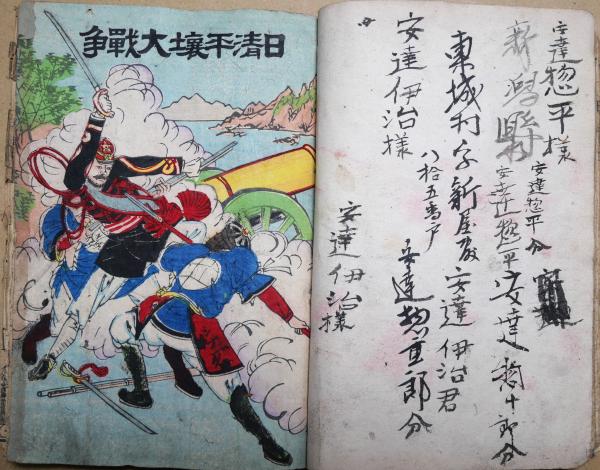 日清平壤大戰争
安達惣平様
新潟縣
安達惣平分
安達惣平
安達
郎分
東城村字新屋敷
安達伊治君
八拾五番戸
安達惣重郎分
安達伊治様
安達伊治様